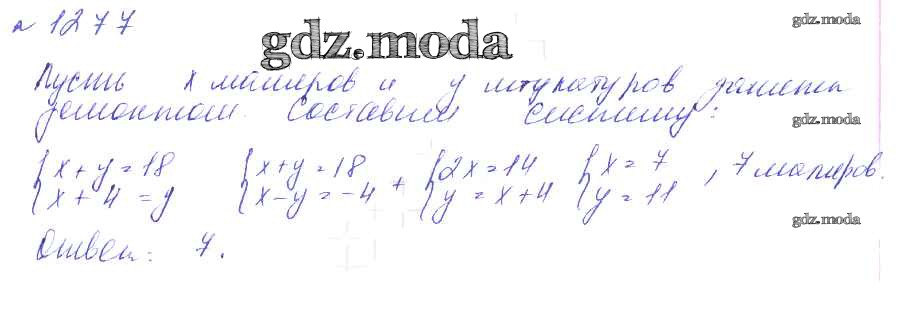 № 1277
gdz.moda
gdz.moda
Пусть x маляров и y штукатуров заняты
ремонтом. Составим систему:
gdz.moda
{x + y = 18 {x + y = 18 {2x = 14 {x = 7
{x + 4 = y {x - y = -4 + {y = x + 4 {y = 11 , 7 маляров.
gdz.moda
Ответ: 7.